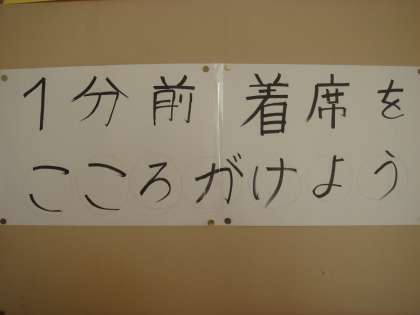 1分前着席を
こころがけよう